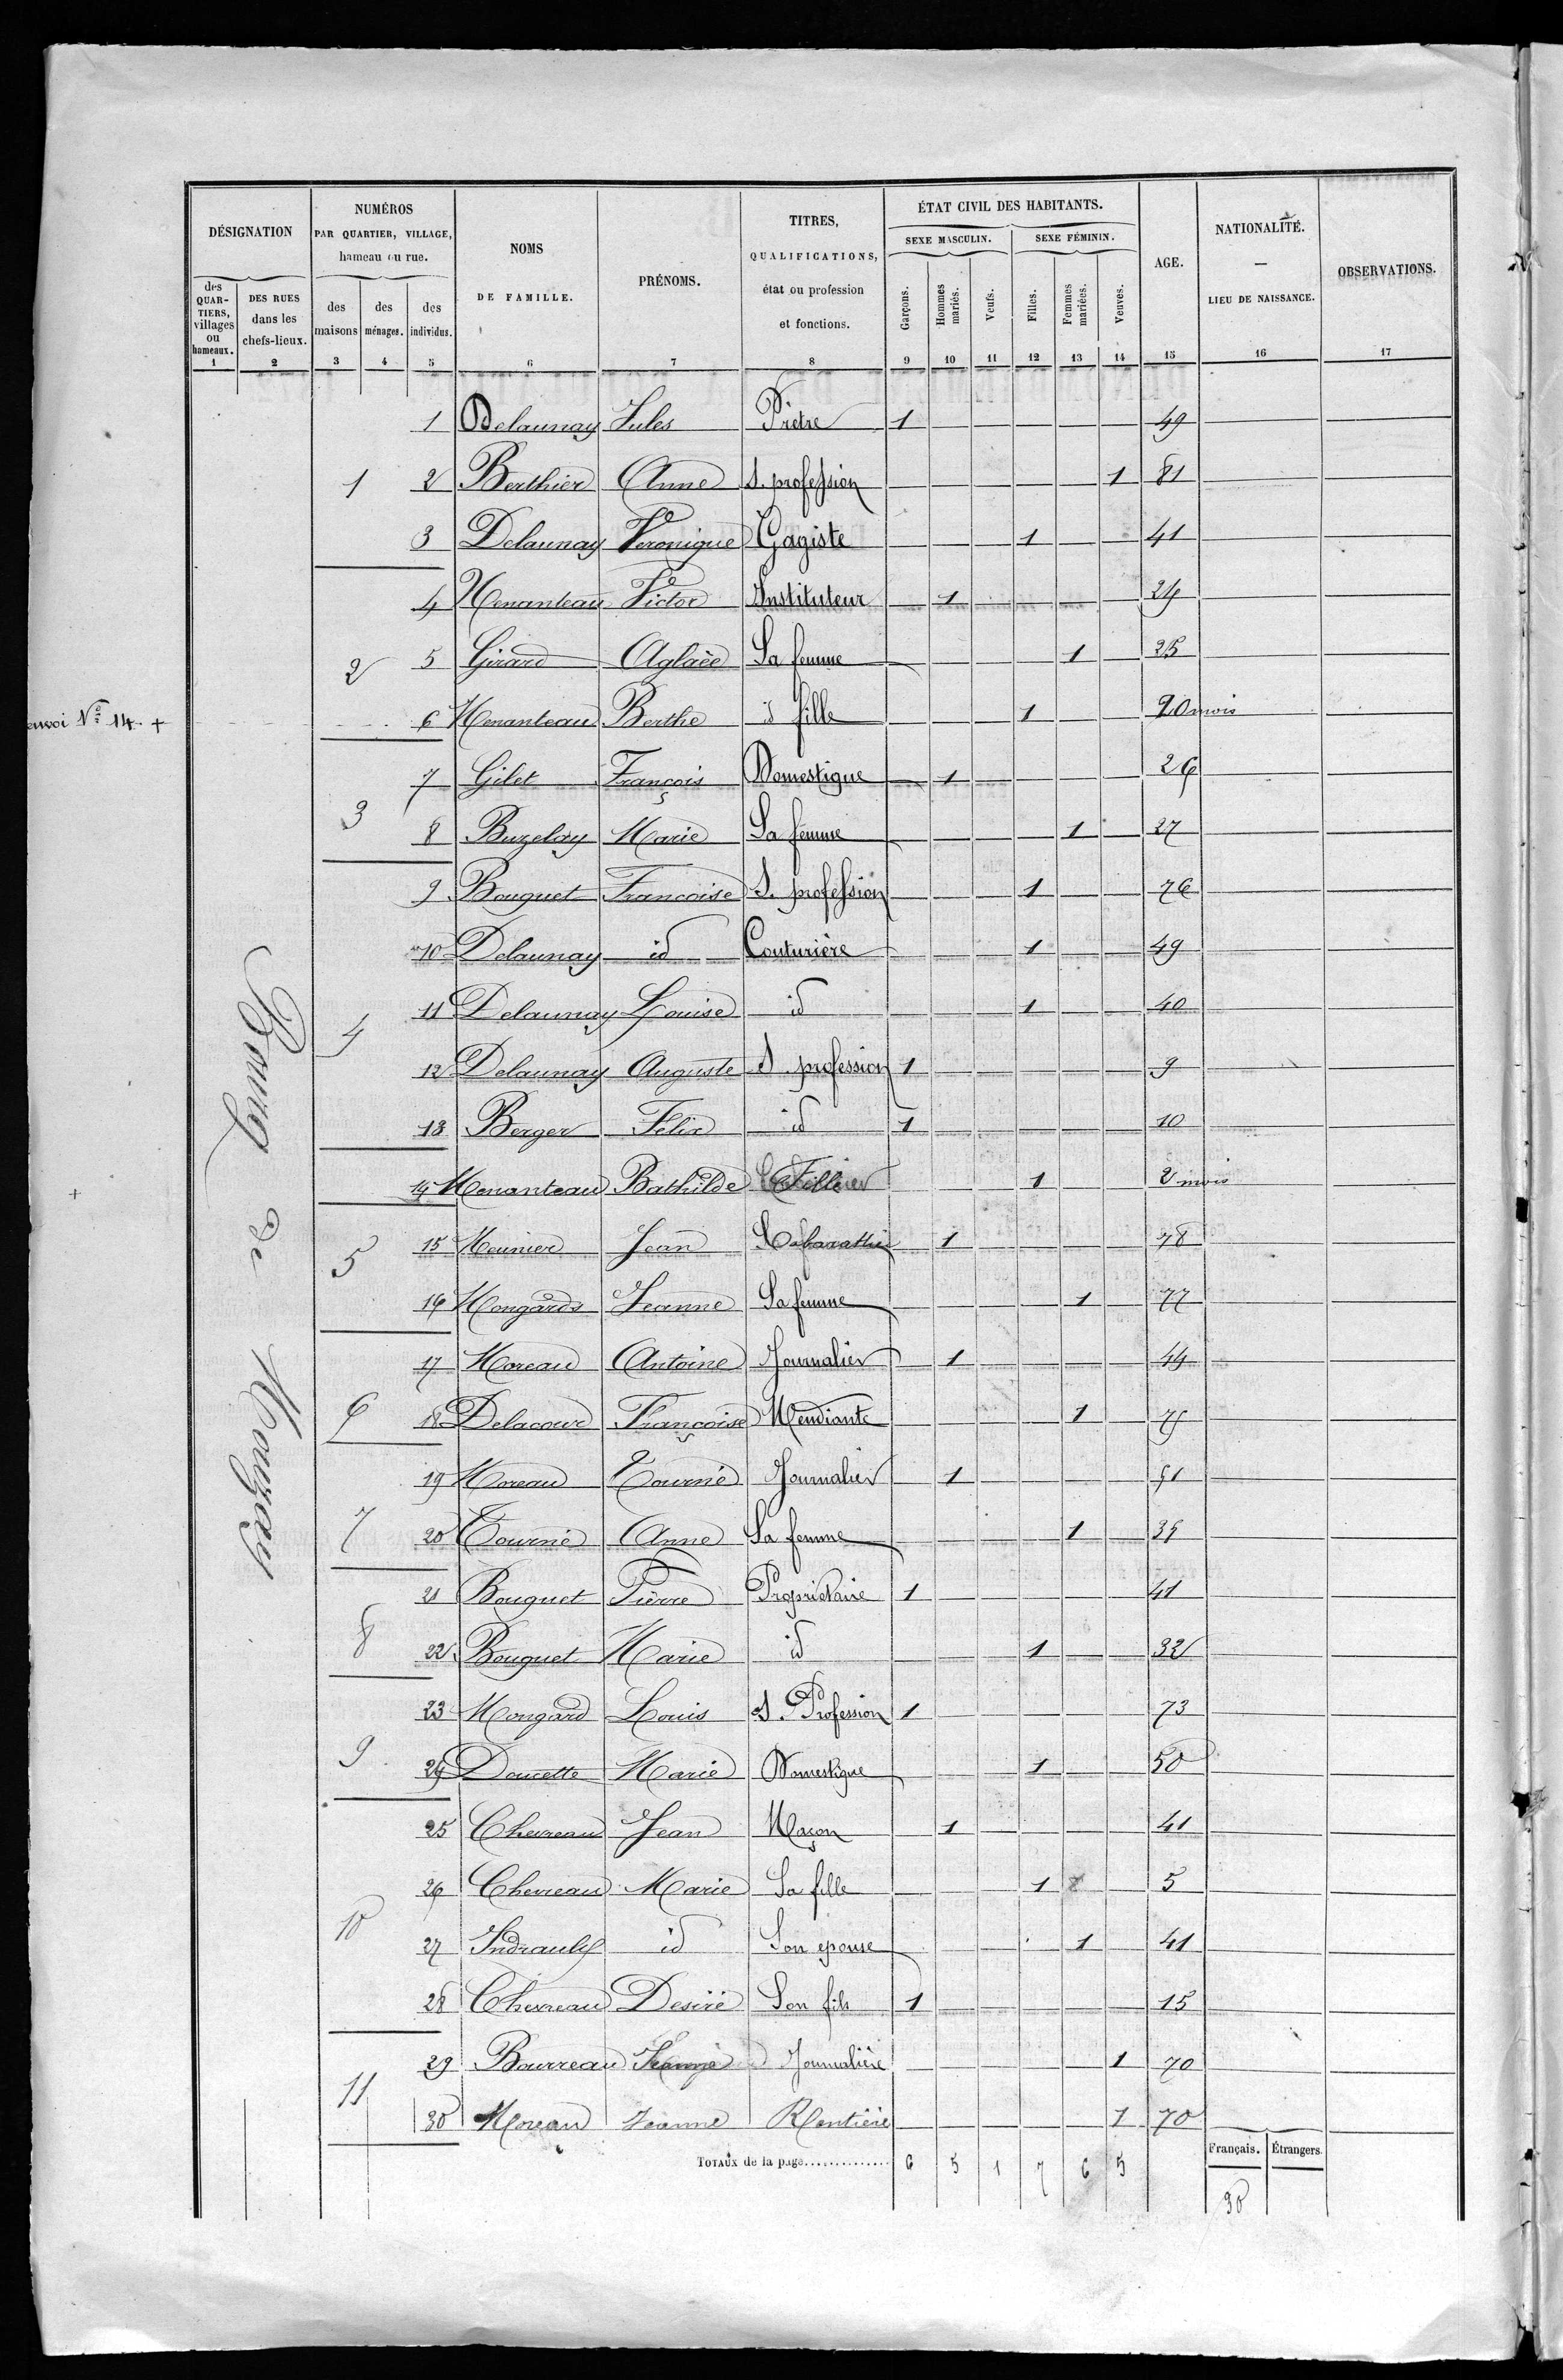 DÉSIGNATION
des QUARTIERS, villages ou hameaux. 1
DES RUES dans les chefs-lieux. 2
NUMÉROS PAR QUARTIER, VILLAGE, hameau ou rue.
des maisons 3
des ménages. 4
des individus. 5
NOMS DE FAMILLE. 6
PRÉNOMS. 7
TITRES, QUALIFICATIONS, état ou profession et fonctions. 8
ÉTAT CIVIL DES HABITANTS.
SEXE MASCULIN.
SEXE FÉMININ.
Garçons. 9
Hommes mariés. 10
Veufs. 11
Filles. 12
Femmes mariées. 13
Veuves. 14
AGE. 15
NATIONALITÉ. — LIEU DE NAISSANCE. 16
OBSERVATIONS. 17
Bourg de
1 Delaunay Jules Prêtre 1 49
1 2 Berthier Anne S. profession 1 81
3 Delaunay Veronique Gagiste 1 41
4 Menanteau Victor Instituteur 1 24
2 5 Girard Aglaëe Sa femme 1 25
envoi No 14 +
6 Menanteau Berthe id fille 1 20 mois
7 Gilet François Domestique 1 26
3 8 Buzelay Marie Sa femme 1 27
9 Bouquet Francoise S. profession 1 76
10 Delaunay id Couturière 1 49
4 11 Delaunay Louise id 1 40
12 Delaunay Auguste S. profession 1 9
13 Berger Felix id 1 10
+ 14 Menanteau Bathilde Fille 1 2 mois
5 15 Meunier Jean 1 78
16 Mongards Jeanne Sa femme 1 77
17 Moreau Antoine Journalier 1 44
6 18 Delacour Françoise Mendiante 1 75
19 Moreau Tourné Journalier 1 51
7 20 Tourné Anne Sa femme 1 35
21 Bouquet Pierre Propriétaire 1 41
8 22 Bouquet Marie id 1 32
23 Mongard Louis S. Profession 1 73
9 24 Doucette Marie Domestique 1 50
25 Chevreau Jean Maçon 1 41
26 Chevreau Marie Sa fille 1 5
10 27 Indrault id Son epouse 1 41
28 Chevreau Desiré Son fils 1 15
29 Bourreau Jeanne Journalière 1 70
11 30 Moreau Jeanne Rentière 1 70
TOTAUX de la page............. 6 5 1 7 6 5
Français. Étrangers.
30